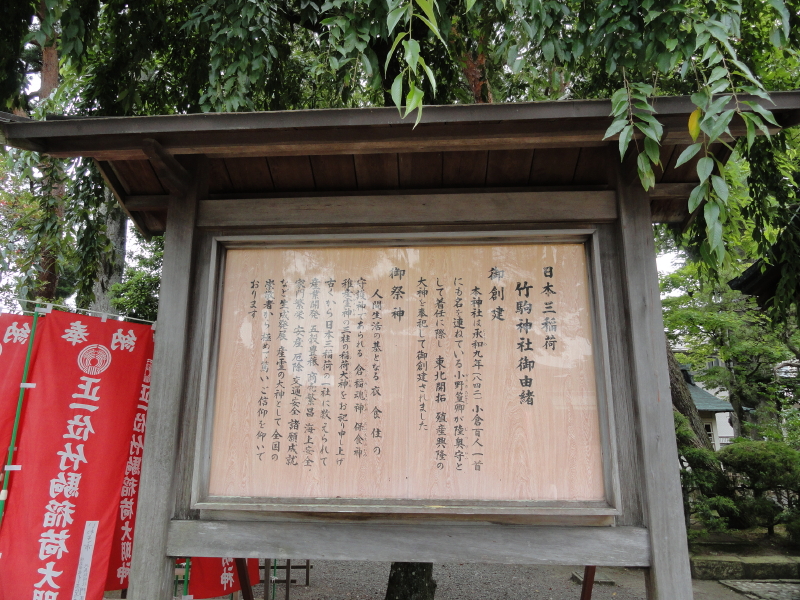 日本三稲荷
竹駒神社御由緒
御創建
本神社は承和九年(八四二)小倉百人一首
にも名を連ねている小野篁卿が陸奥守と
して着任に際し東北開拓 殖産興隆の
大神を奉祀して御創建されました
御祭神
人間生活の基となる 衣 食 住 の
守護神であられる 倉稲魂神 保食神
稚産霊神の三柱の稲荷大神をお祀り申し上げ
古くから日本三稲荷の一社に数えられて
産業開発 五穀豊穣 商売繁昌 海上安全
家門繁栄 安産 厄除 交通安全 諸願成就
など生成発展 産霊の大神として全国の
崇敬者から極めて篤いご信仰を仰いで
おります
奉納
正一位竹駒稲荷大明神
正一位竹駒稲荷大明神
納